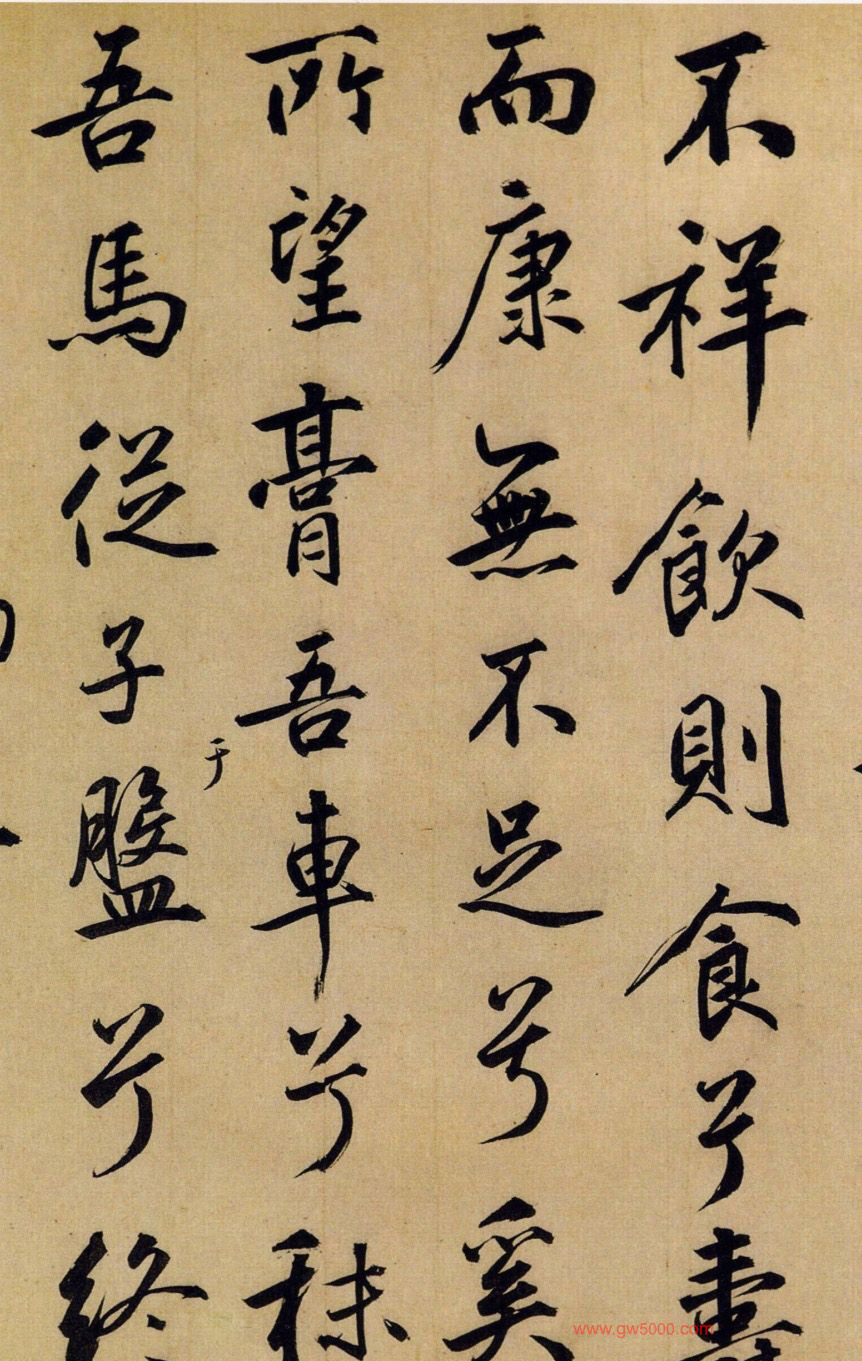 不祥飲則食兮壽
而康無不足兮奚
所望膏吾車兮秣
吾馬從子于盤兮終
www.gw5000.com